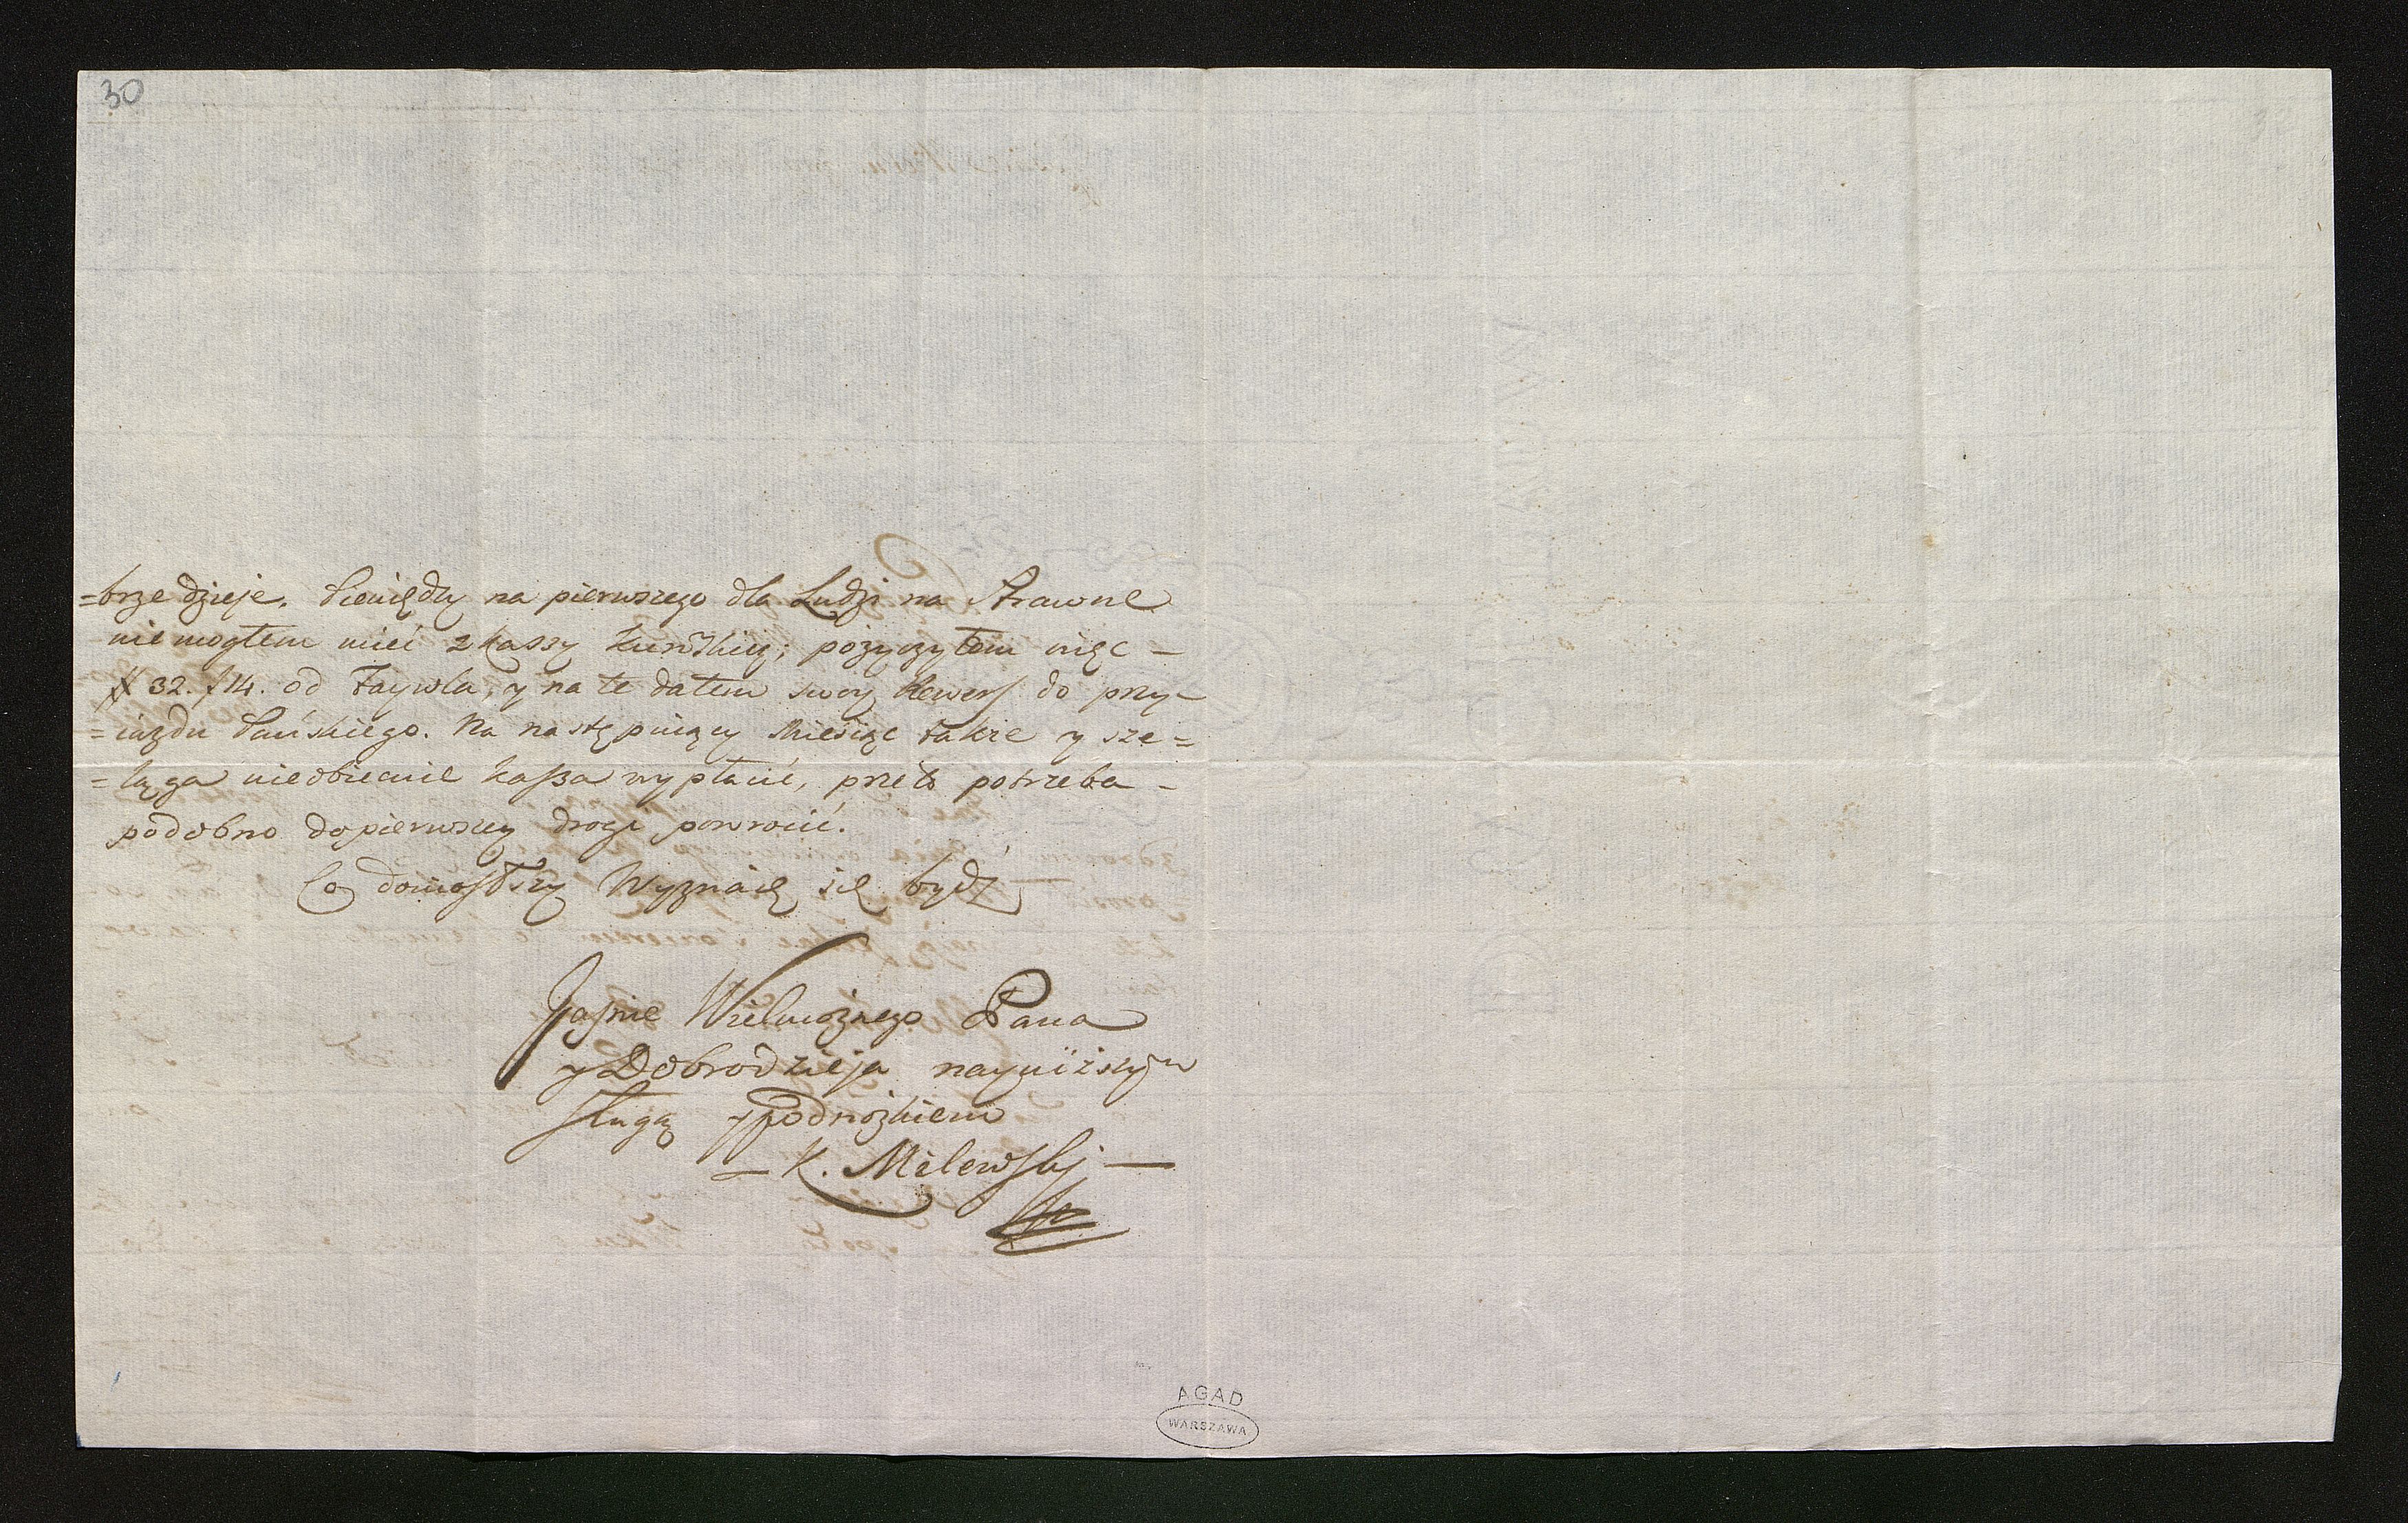 30
=brze dzieje. Pieniędzy na pierwszego dla Ludzi na Strawne
nie mogłem mieć z kassy kurskiey; pożyczyłem więc –
# 32. f 14. od Faywla, y na te dałem swoy Rewers do przy–
=iazdu Pańskiego. Na następuiący Miesiąc także y sze=
=ląga nieobiecuie kassa wypłacić, przeto potrzeba –
podobno do pierwszey drogi powrocić.
Co doniosłszy Wyznaię się bydź
Jaśnie Wielmożnego Pana
y Dobrodzieja nayniższym
sługą y Podnożkiem
– K. Milewski –
AGAD
WARSZAWA